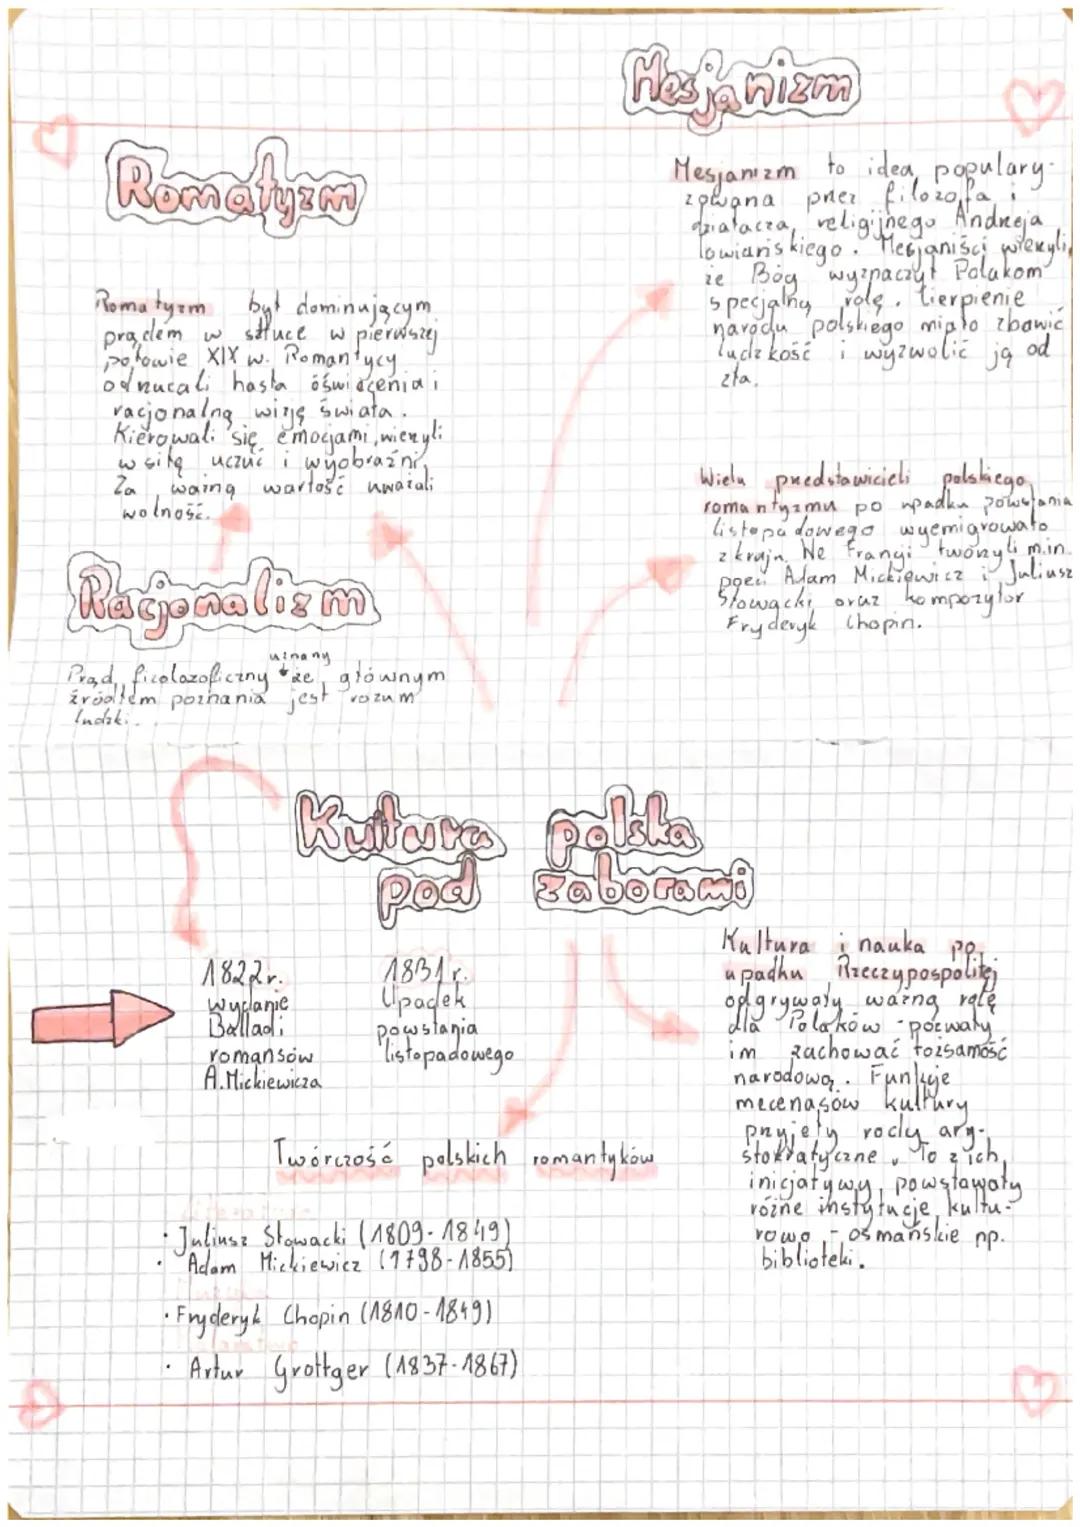 Mesjanizm
Romatyzm
Mesjanizm to idea populary-
zowana przez filozofa i
działacza religijnego Andrzeja
Towiańskiego. Mesjaniści wierzyli,
że Bóg wyznaczył Polakom
specjalną rolę. Cierpienie
narodu polskiego miało zbawić
ludzkość i wyzwolić ją od
zła.
Romatyzm był dominującym
prądem w sztuce w pierwszej
połowie XIX w. Romantycy
odrzucali hasła oświecenia i
racjonalną wizję świata.
Kierowali się emocjami, wierzyli
w siłę uczuć i wyobraźni,
Za ważną wartość uważali
wolność.
Wielu przedstawicieli polskiego
romantyzmu po upadku powstania
listopadowego wyemigrowało
z kraju. We Francji tworzyli m.in.
poeci Adam Mickiewicz i Juliusz
Słowacki oraz kompozytor
Fryderyk Chopin.
Racjonalizm
uznany
Prąd ficolazoficzny że głównym
źródłem poznania jest rozum
ludzki.
Kultura polska
pod zaborami
1822r.
wydanie
Ballad i
romansów
A.Mickiewicza
1831r.
Upadek
powstania
listopadowego
Kultura i nauka po
upadku Rzeczypospolitej
odgrywały ważną rolę
dla Polaków - pozwały
im zachować tożsamość
narodową. Funkcje
mecenasów kultury
przyjęły rody ary-
stokratyczne. To z ich
inicjatywy powstawały
różne instytucje kultu-
rowo - osmańskie np.
biblioteki.
Twórczość polskich romantyków
· Juliusz Słowacki (1809-1849)
· Adam Mickiewicz (1798-1855)
· Fryderyk Chopin (1810-1849)
· Artur Grottger (1837-1867)